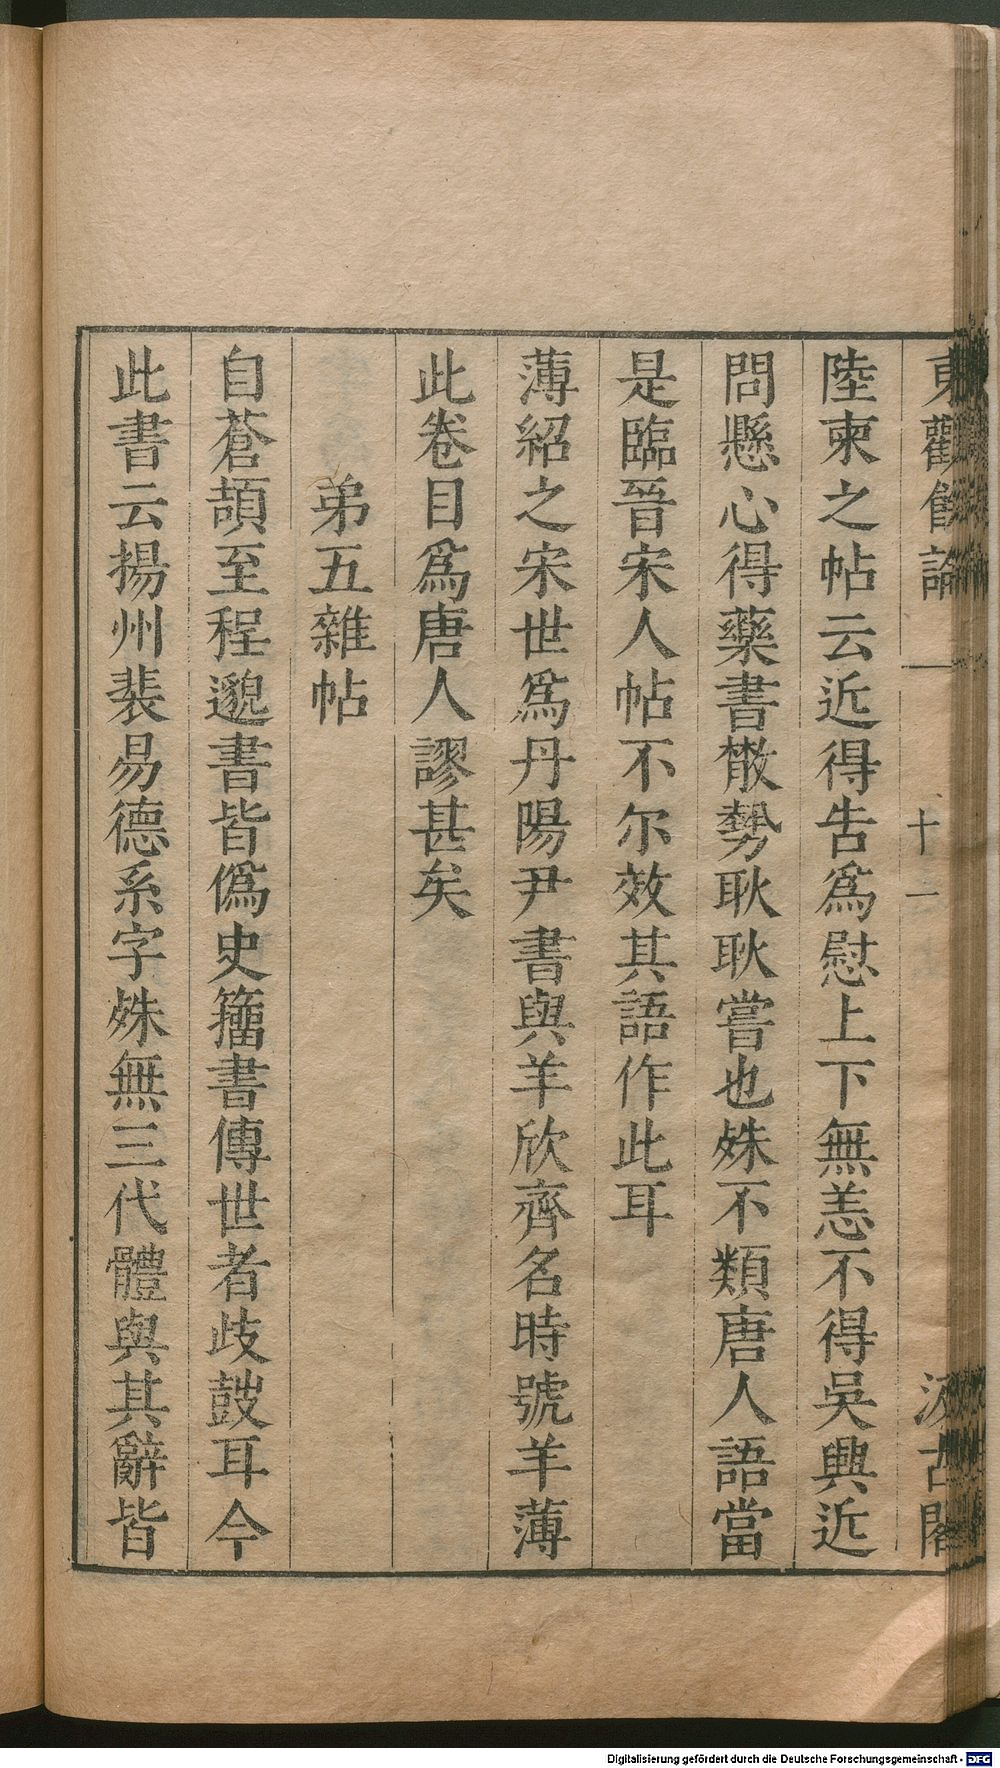 東觀餘論 一 十一 汲古閣
陸柬之帖云近得告爲慰上下無恙不得吳興近
問懸心得藥書㪚勢耿耿嘗也姝不類唐人語當
是臨晉宋人帖不尔效其語作此耳
薄紹之宋世爲丹陽尹書與羊欣齊名時號羊薄
此卷目爲唐人謬甚矣
弟五雜帖
自蒼頡至程邈書皆僞史籒書傳世者歧鼓耳今
此書云揚州裴易德系字姝無三代體與其辭皆
Digitalisierung gefördert durch die Deutsche Forschungsgemeinschaft - DFG